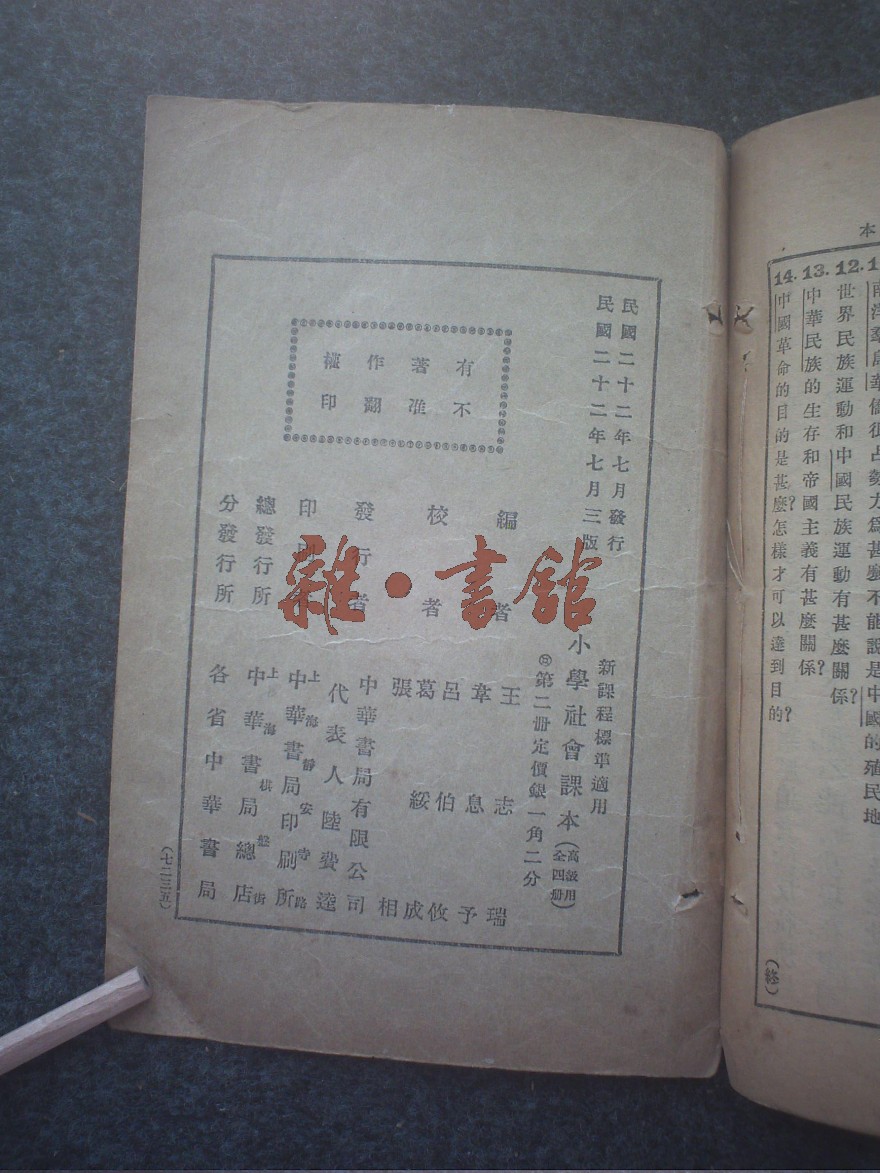 本
南洋羣島華僑很占勢力爲甚麼不能說是中國的殖民地
12.世界民族運動和中國民族運動有甚麼關係?
13.中華民族的生存和帝國主義有甚麼關係?
14.中國革命的目的是甚麼?怎樣才可以達到目的?
(終)
民國二十二年七月發行
民國二十二年七月三版
新課程標準適用
小學社會課本(高級用全四册)
第二册定價銀一角二分
有著作權
不准翻印
編者
王志瑞
韋息予
校者
呂伯攸
葛綏成
張相
發行者
中華書局有限公司
代表人陸費逵
印刷
上海靜安寺路
中華書局印刷所
總發行所
上海棋盤街
中華書局總店
分發行所
各省中華書局
(七二三五)
雜·書館